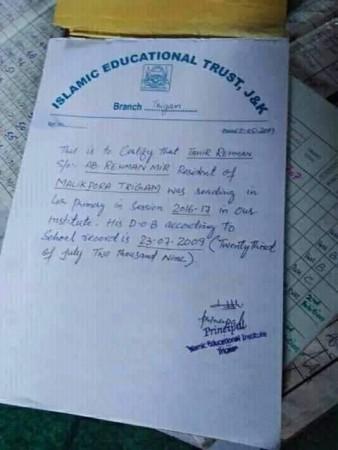 ISLAMIC EDUCATIONAL TRUST, J&K
Branch Trigam
This is to Certify that TAHIR REHMAN
S/o:- AB. REHMAN MIR Resident of
MALIKPORA TRIGAM was reading in
Low Primary in Session 2016-17 in our
Institute. His D-O-B according to
School record is 23-07-2009 (Twenty third
of July Two Thousand Nine).
Principal
Principal
Islamic Educational Institute
Trigam